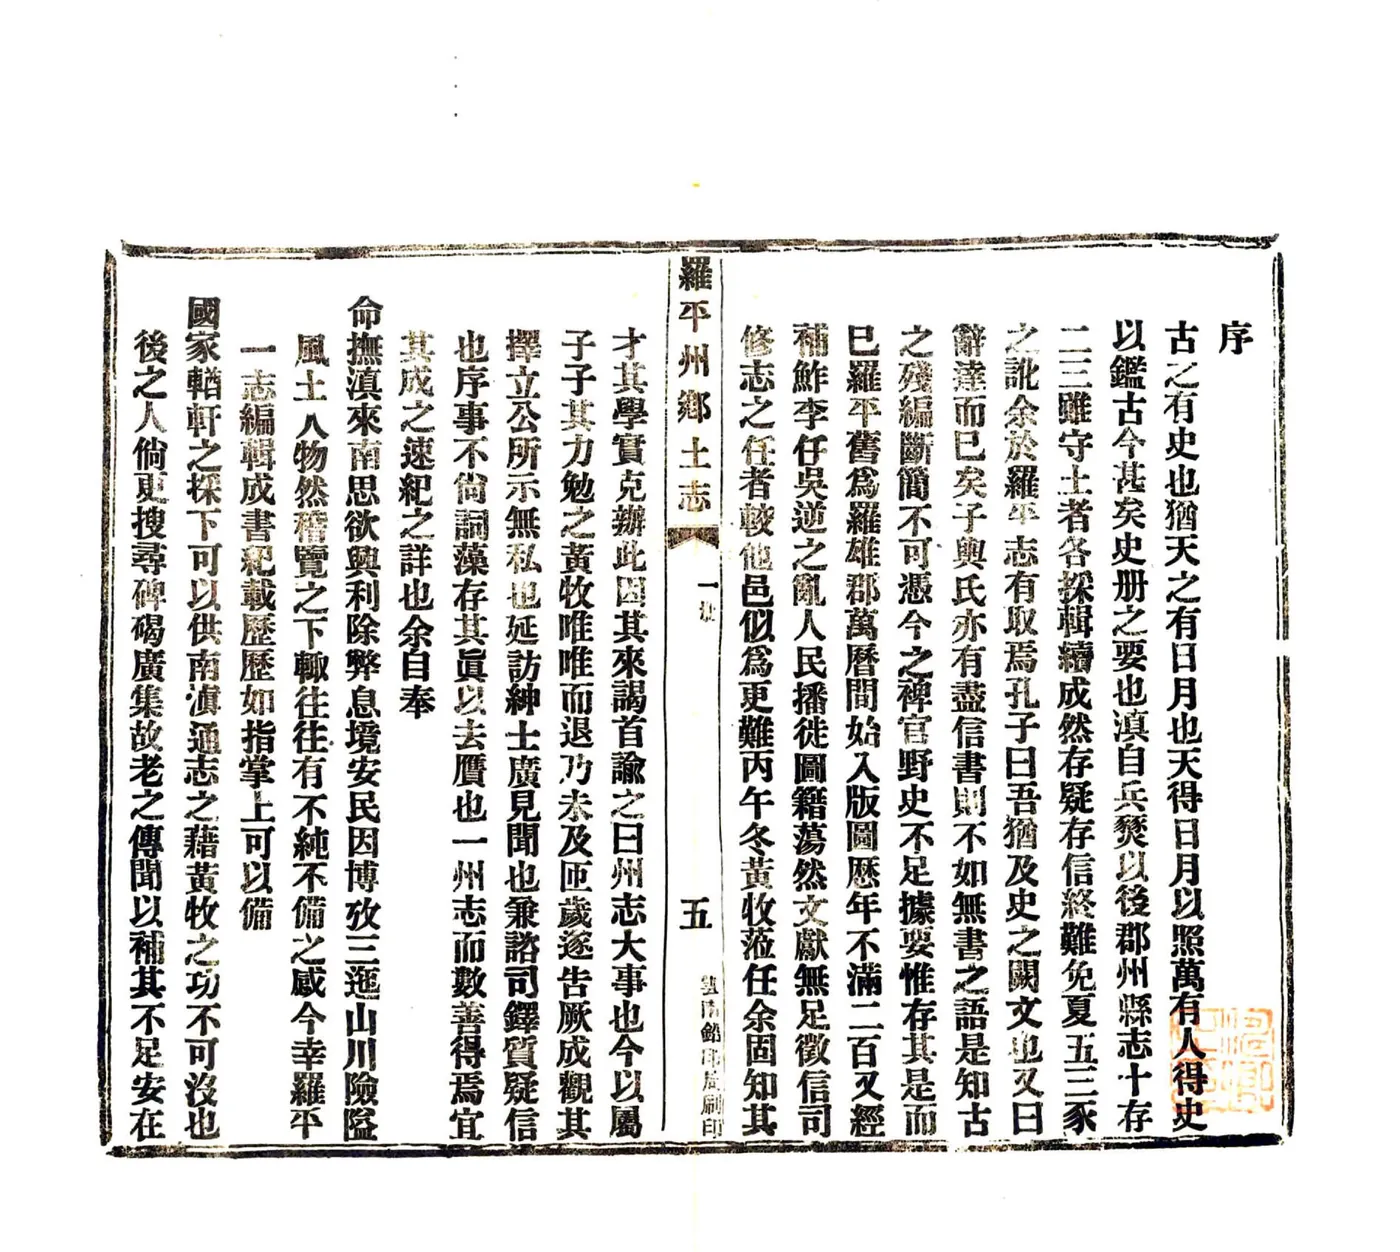 序
古之有史也猶天之有日月也天得日月以照萬有人得史
以鑑古今甚矣史册之要也滇自兵燹以後郡州縣志十存
二三雖守土者各採輯續成然存疑存信終難免夏五三豕
之訛余於羅平志有取焉孔子曰吾猶及史之闕文也又曰
辭達而已矣子輿氏亦有盡信書則不如無書之語是知古
之殘編斷簡不可憑今之稗官野史不足據要惟存其是而
已羅平舊爲羅雄郡萬曆間始入版圖歷年不滿二百又經
補鮓李任吳逆之亂人民播徙圖籍蕩然文獻無足徵信司
修志之任者較他邑似爲更難丙午冬黃牧蒞任余固知其
羅平州鄉土志
一
五
印
才其學實克辦此因其來謁首諭之曰州志大事也今以屬
子子其力勉之黃牧唯唯而退乃未及匝歲遂告厥成觀其
擇立公所示無私也延訪紳士廣見聞也兼諮司鐸質疑信
也序事不尙詞藻存其眞以去贋也一州志而數善得焉宜
其成之速紀之詳也余自奉
命撫滇來南思欲興利除弊息境安民因博攷三迤山川險隘
風土人物然稽覽之下輙往往有不純不備之感今幸羅平
一志編輯成書紀載歷歷如指掌上可以備
國家輶軒之採下可以供南滇通志之藉黃牧之功不可沒也
後之人倘更搜尋碑碣廣集故老之傳聞以補其不足安在